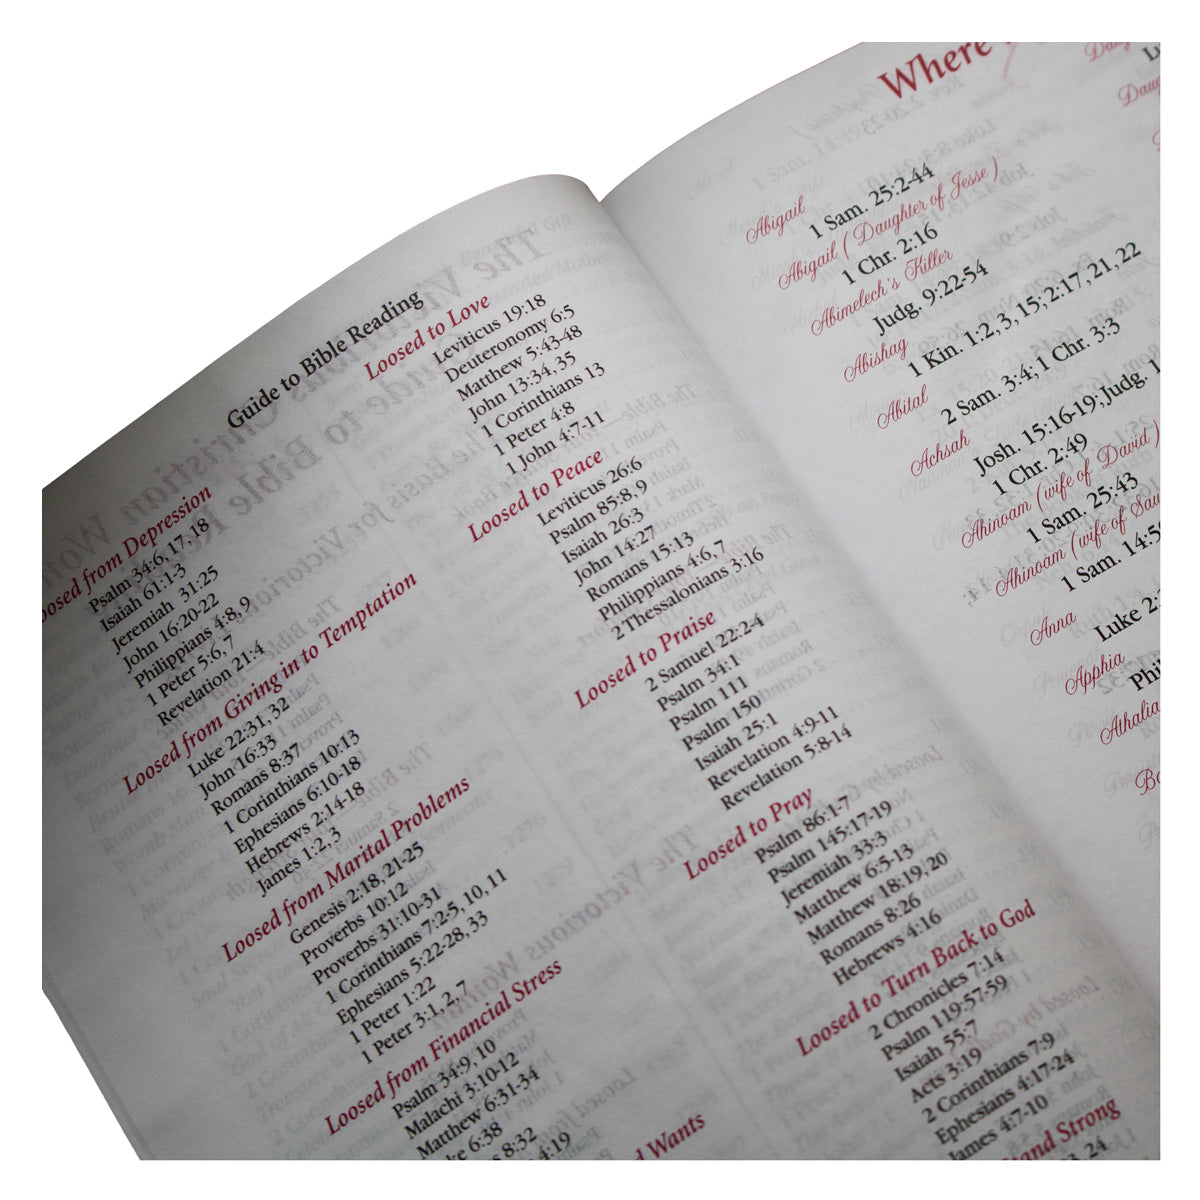 Guide to Bible Reading
Loosed from Depression
Psalm 34:6, 17, 18
Isaiah 61:1-3
Jeremiah 31:25
John 16:20-22
Philippians 4:8, 9
1 Peter 5:6, 7
Revelation 21:4
Loosed from Giving in to Temptation
Luke 22:31, 32
John 16:33
Romans 8:37
1 Corinthians 10:13
Ephesians 6:10-18
Hebrews 2:14-18
James 1:2, 3
Loosed from Marital Problems
Genesis 2:18, 21-25
Proverbs 10:12
Proverbs 31:10-31
1 Corinthians 7:2-5, 10, 11
Ephesians 5:22-28, 33
1 Peter 1:22
1 Peter 3:1, 2, 7
Loosed from Financial Stress
Psalm 34:9, 10
Malachi 3:10-12
Matthew 6:31-34
6:38
8:32
4:19
Wants
Loosed to Love
Leviticus 19:18
Deuteronomy 6:5
Matthew 5:43-48
John 13:34, 35
1 Corinthians 13
1 Peter 4:8
1 John 4:7-11
Loosed to Peace
Leviticus 26:6
Psalm 85:8, 9
Isaiah 26:3
John 14:27
Romans 15:13
Philippians 4:6, 7
2 Thessalonians 3:16
Loosed to Praise
2 Samuel 22:2-4
Psalm 34:1
Psalm 111
Psalm 150
Isaiah 25:1
Revelation 4:9-11
Revelation 5:8-14
Loosed to Pray
Psalm 86:1-7
Psalm 145:17-19
Jeremiah 33:3
Matthew 6:5-13
Matthew 18:19, 20
Romans 8:26
Hebrews 4:16
Loosed to Turn Back to God
2 Chronicles 7:14
Psalm 119:57-59
Isaiah 55:7
Acts 3:19
2 Corinthians 7:9
Ephesians 4:17-24
James 4:7-10
Stand Strong
24
Where
Abigail
1 Sam. 25:2-44
Abigail ( Daughter of Jesse )
1 Chr. 2:16
Abimelech's Killer
Judg. 9:22-54
Abishag
1 Kin. 1:2, 3, 15; 2:17, 21, 22
Abital
2 Sam. 3:4; 1 Chr. 3:3
Achsah
Josh. 15:16-19; Judg. 1
1 Chr. 2:49
Ahinoam (wife of David )
1 Sam. 25:43
Ahinoam (wife of
1 Sam. 14:5
Anna
Luke 2:
Apphia
Phil
Athalia